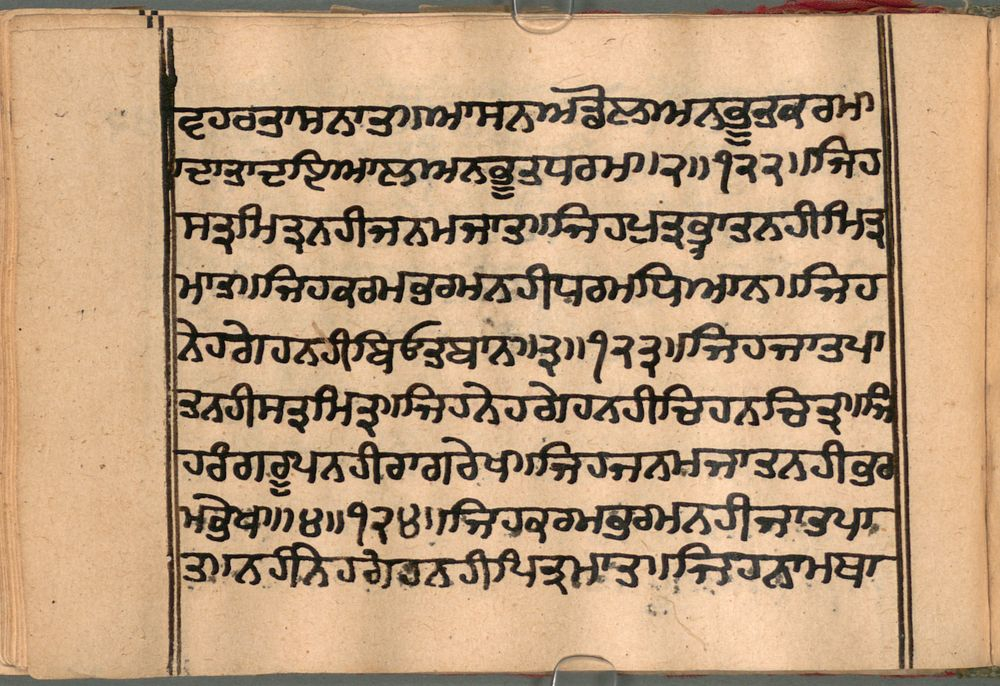 ॥ਆਸਨਅਡੋਲ॥ਅਨਭੂਤਕਰਮ॥
ਦਾਤਾਦਇਆਲ॥ਅਨਭੂਤਧਰਮ॥੨॥੧੨੨॥ਜਿਹ
ਸਤ੍ਰਮਿਤ੍ਰਨਹੀਜਨਮਜਾਤ॥ਜਿਹਪੁਤ੍ਰਭ੍ਰਾਤਨਹੀਮਿਤ੍ਰ
ਮਾਤ॥ਜਿਹਕਰਮਭਰਮਨਹੀਧਰਮਧਿਆਨ॥ਜਿਹ
ਨੇਹਗੇਹਨਹੀਬਿਓਤਬਾਨ॥੩॥੧੨੩॥ਜਿਹਜਾਤਪਾ
ਤਨਹੀਸਤ੍ਰਮਿਤ੍ਰ॥ਜਿਹਨੇਹਗੇਹਨਹੀਚਿਹਨਚਿਤ੍ਰ॥ਜਿ
ਹਰੰਗਰੂਪਨਹੀਰਾਗਰੇਖ॥ਜਿਹਜਨਮਜਾਤਨਹੀਭਰ
ਮਭੇਖ॥੪॥੧੨੪॥ਜਿਹਕਰਮਭਰਮਨਹੀਜਾਤਪਾ
ਤ॥ਨਹੀਨੇਹਗੇਹਨਹੀਪਿਤ੍ਰਮਾਤ॥ਜਿਹਨਾਮਥਾ